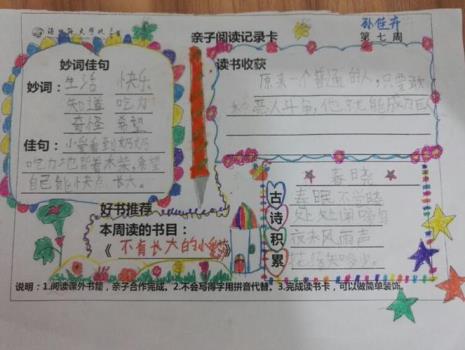 亲子阅读记录卡
第七周
妙词佳句
妙词：生活 快乐
知道 吃力
奇怪 希望
佳句：小爱看到奶奶
吃力地背着木柴，希望
自己能快点长大。
读书收获
原来一个普通的人，只要敢
恶人斗争，他
好书推荐
本周读的书目：
《不肯长大的小
古诗积累
春晓
春眠不觉晓
处处闻啼鸟
夜来风雨声
花落知多少。
说明：1.阅读课外书籍，亲子合作完成。2.不会写得字用拼音代替。3.完成读书卡，可以做简单装饰。